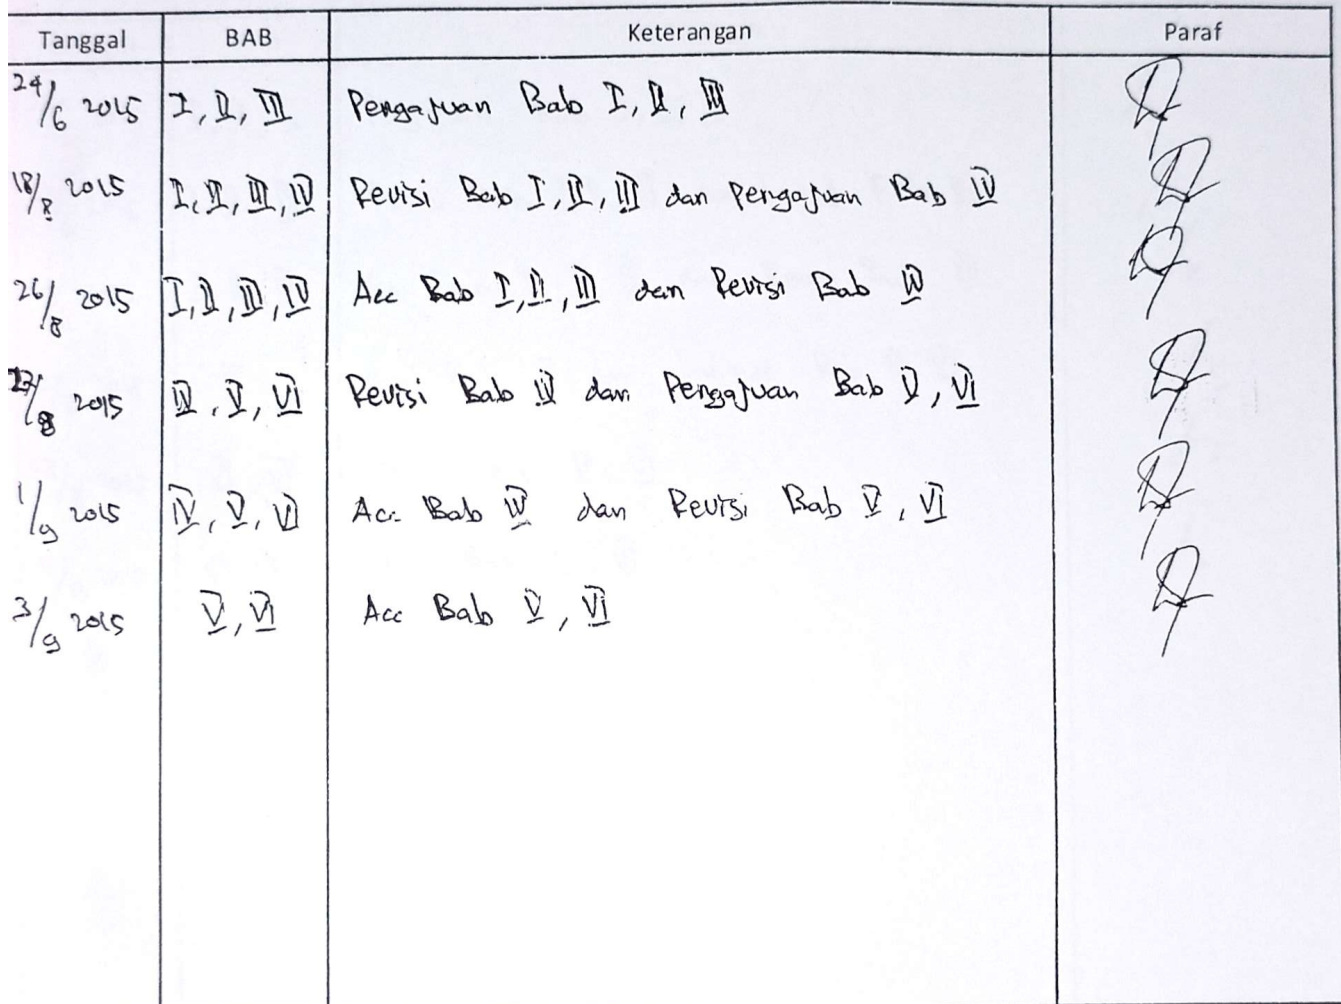 Tanggal BAB Keterangan Paraf
24/6 2015 I, II, III Pengajuan Bab I, II, III
18/8 2015 I, II, III, IV Revisi Bab I, II, III dan Pengajuan Bab IV
26/8 2015 I, II, III, IV Acc Bab I, II, III dan Revisi Bab IV
2015 IV, V, VI Revisi Bab IV dan Pengajuan Bab V, VI
1/9 2015 IV, V, VI Acc Bab IV dan Revisi Bab V, VI
3/9 2015 V, VI Acc Bab V, VI